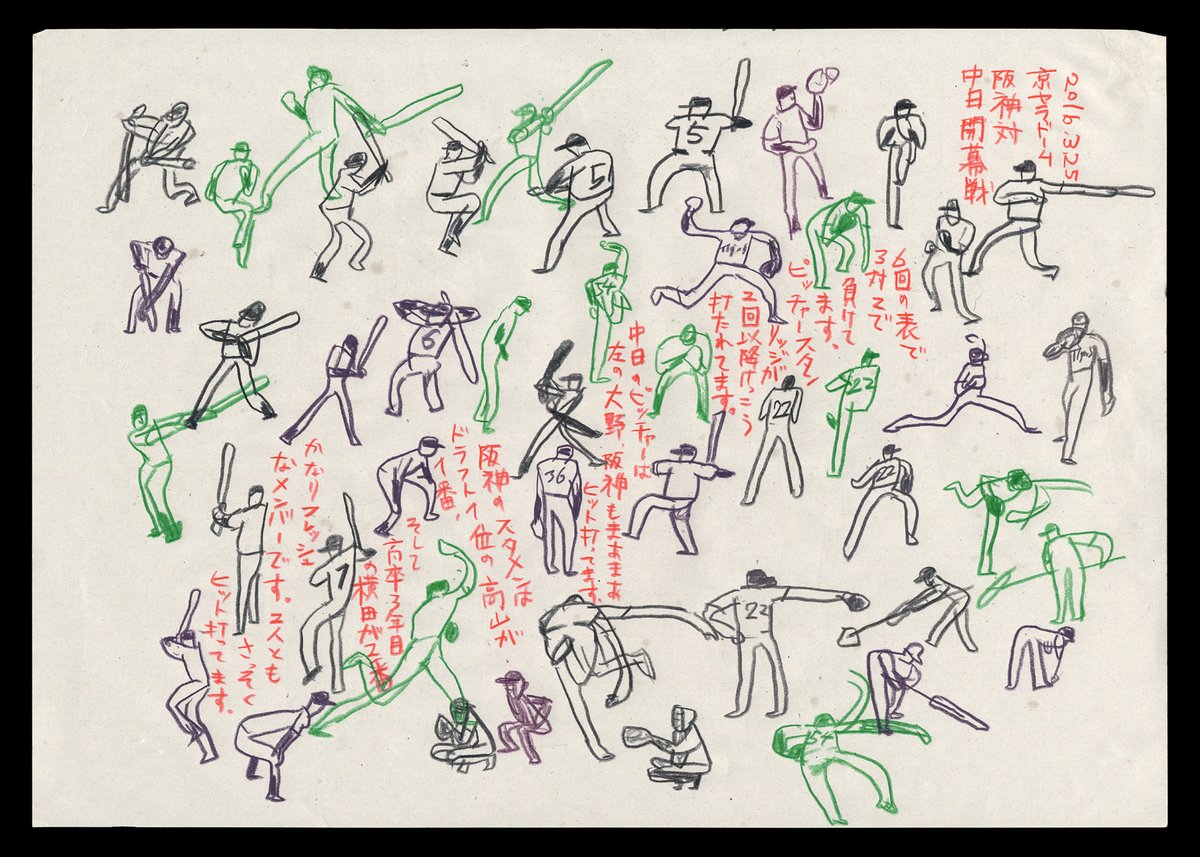 2016.3.25
京セラドーム
阪神対
中日開幕戦
6回の表で
3対2で
負けて
ます。
ピッチャースタン
リッジが
2回以降けっこう
打たれてます。
中日のピッチャーは
左の大野、阪神もまあまあ
ヒット打ってます。
阪神のスタメンは
ドラフト1位の高山が
1番、
そして
高卒3年目
の横田が2番
かなりフレッシュ
なメンバーです。2人とも
さっそく
ヒット打ってます。
5
5
6
22
22
36
22
7